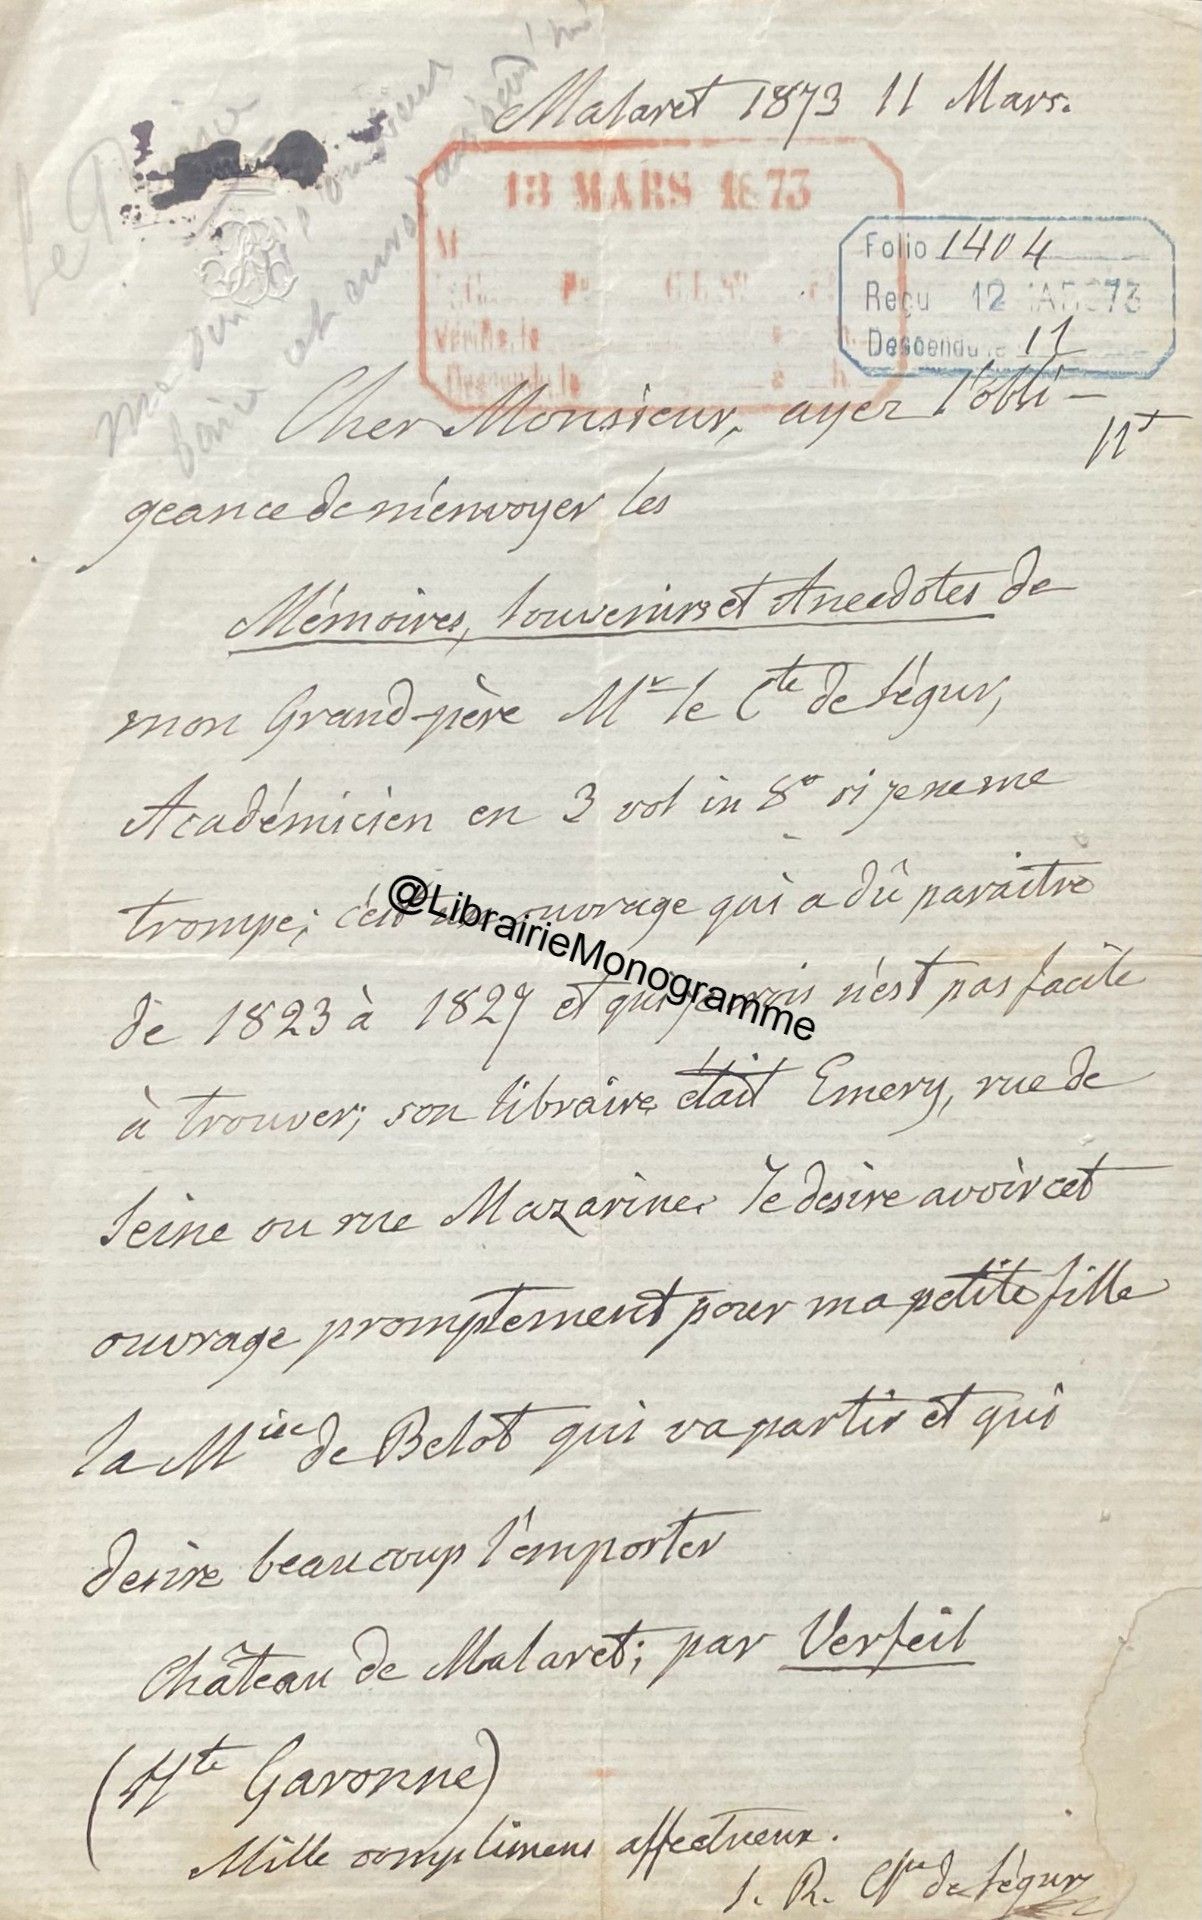 Malaret 1873 11 Mars.
13 MARS 1873
M
Vérifié, le
Descendu le
Folio 1404
Reçu 12 MARS 73
Descendu le 11
Cher Monsieur, ayez l'obli-
nt
geance de m'envoyer les
Mémoires, Souvenirs et Anecdotes de
mon Grand-père Mr le Cte de Ségur,
Académicien en 3 vol in 8o si je ne me
trompe; c'est un ouvrage qui a dû paraitre
de 1823 à 1827 et qui je crois n'est pas facile
à trouver; son libraire était Emery, rue de
Seine ou rue Mazarine. Je desire avoir cet
ouvrage promptement pour ma petite fille
la Mise de Belot qui va partir et qui
desire beaucoup l'emporter
Château de Malaret; par Verfeil
(Hte Garonne)
Mille complimens affectueux.
S. R. Ctsse de Ségur
@LibrairieMonogramme